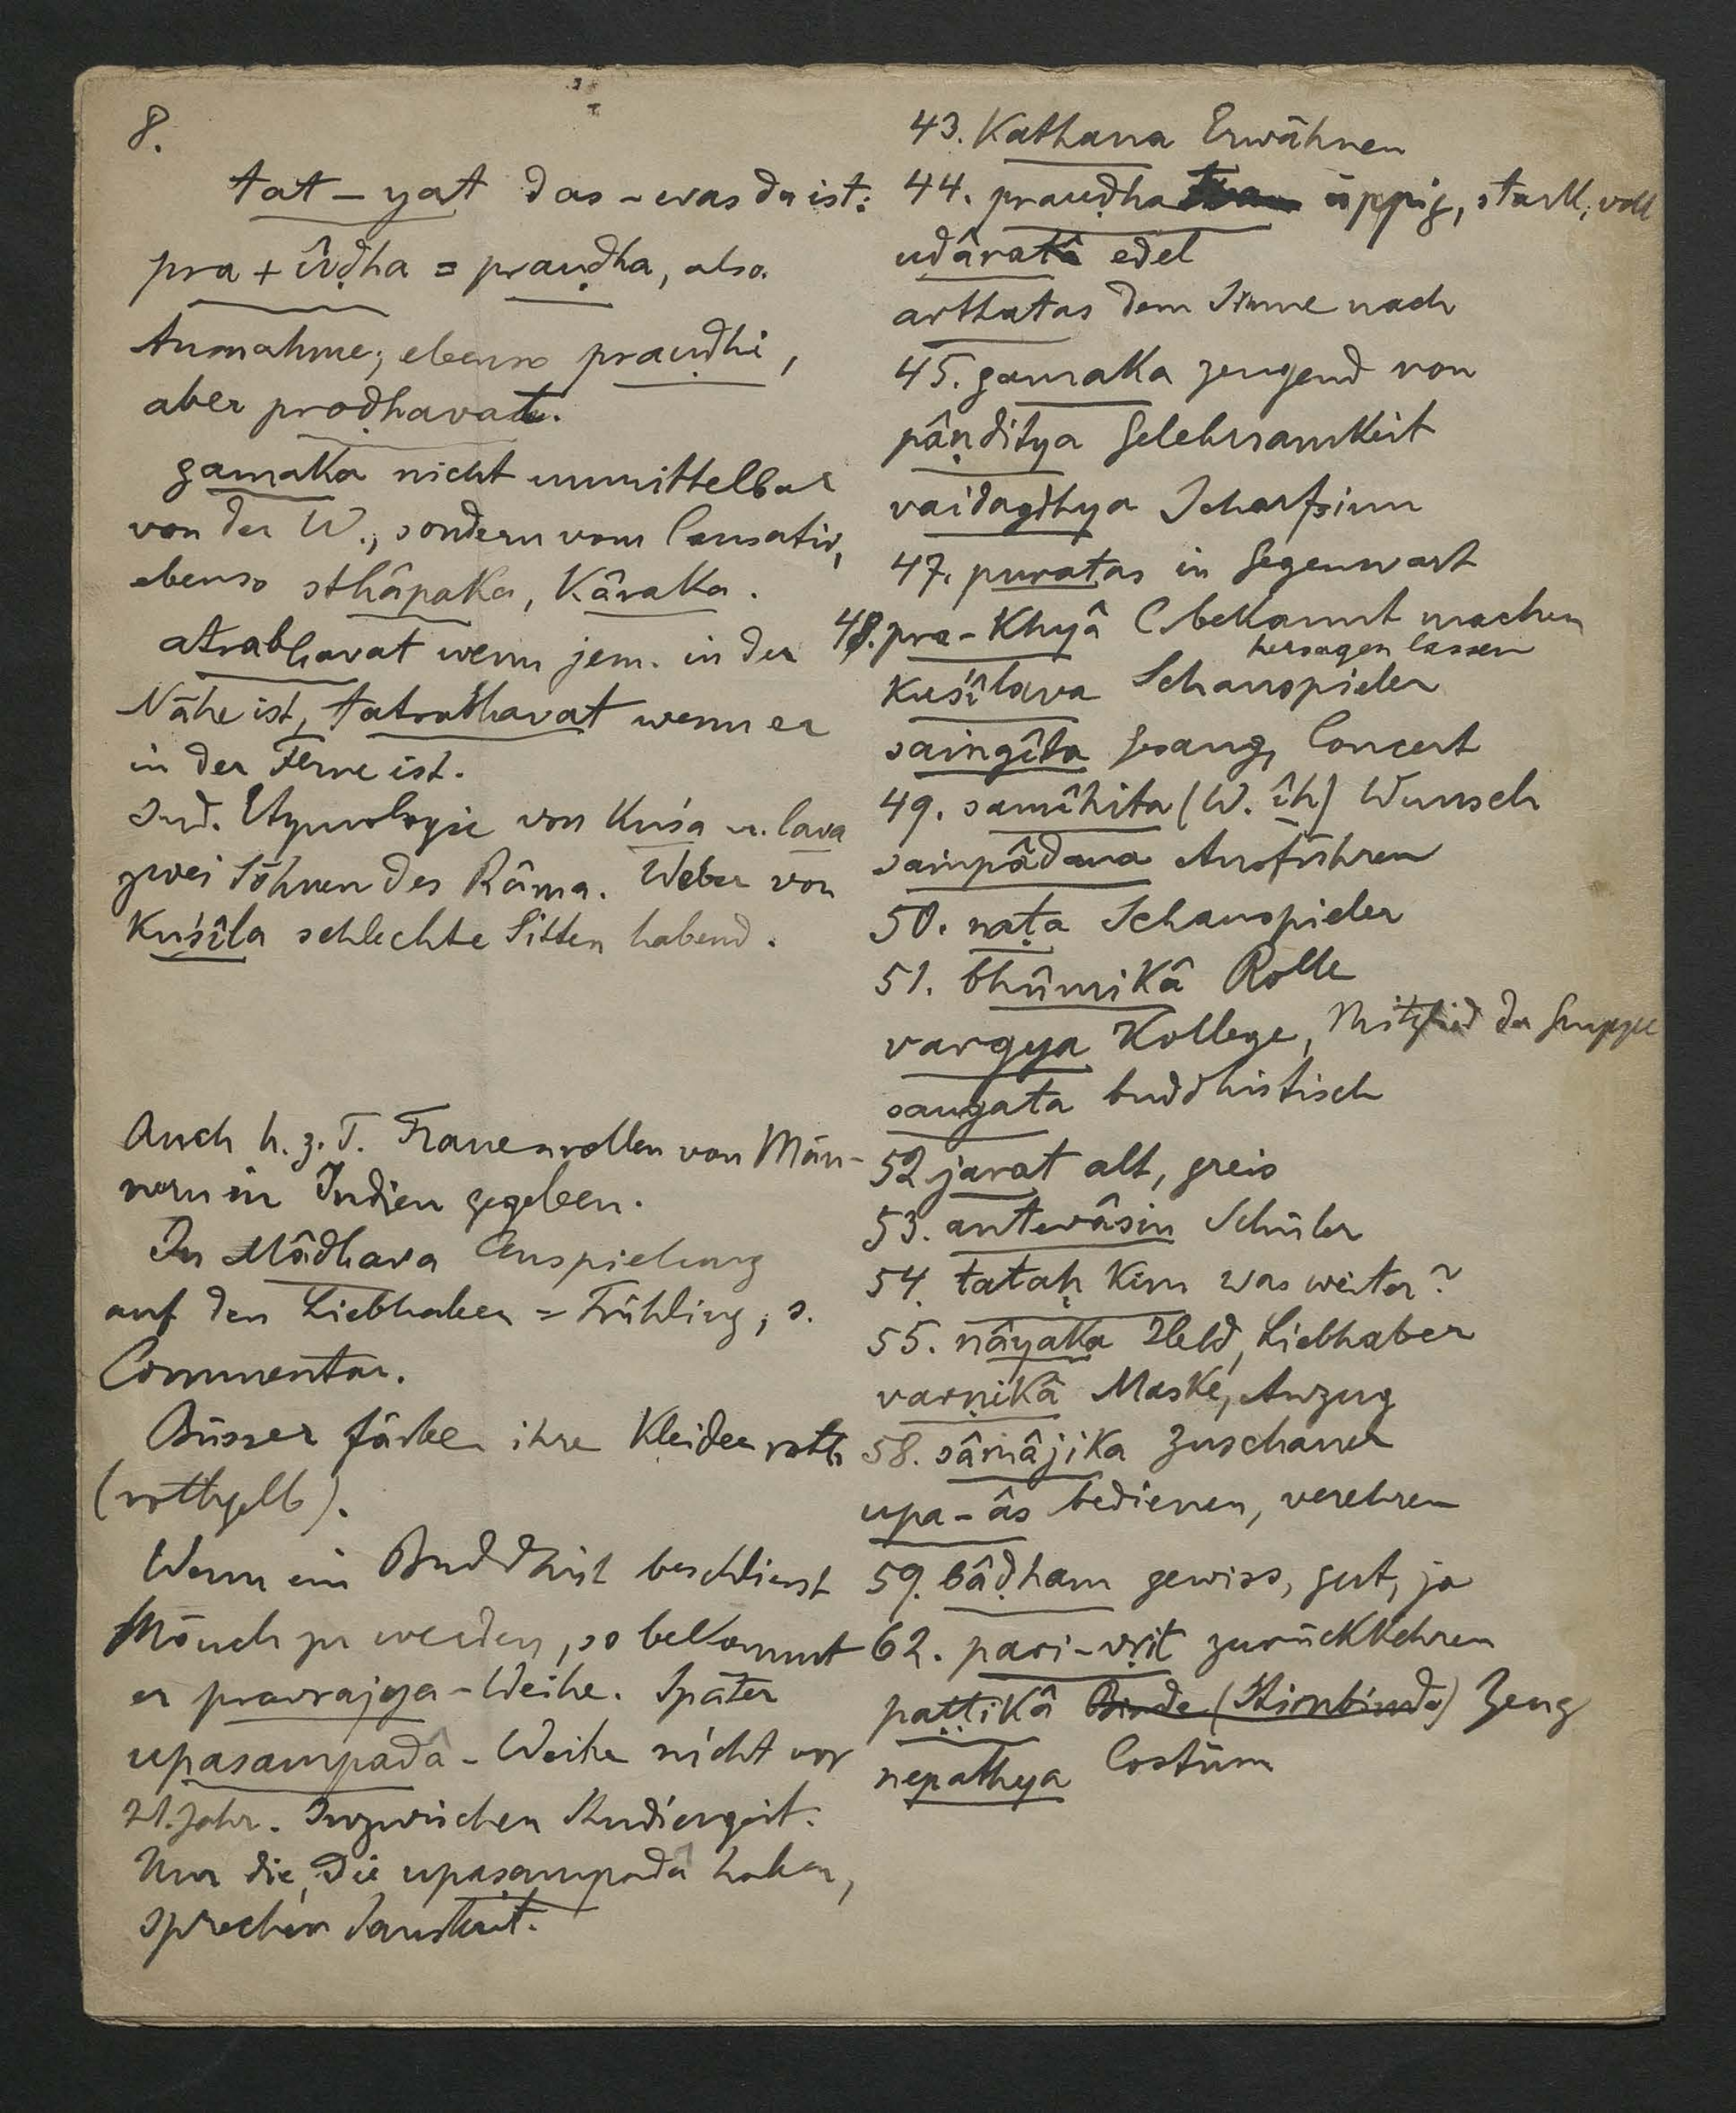 8.
tat – yat das – was da ist:
pra + ûḍha = prauḍha, also
Ausnahme; ebenso prauḍhi,
aber proḍhavat.
gamaka nicht unmittelbar
von der W., sondern vom Causativ,
ebenso sthâpaka, Kâraka.
atrabhavat wenn jem. in der
Nähe ist, tatrabhavat wenn er
in der Ferne ist.
Ind. Etymologie von Kuśa u. lava
zwei Söhnen des Râma. Weber von
Kuśîla schlechte Sitten habend.
Auch h. z. T. Frauenrollen von Män-
nern in Indien gegeben.
In Mâdhava Anspielung
auf den Liebhaber = Frühling, s.
Commentar.
Büsser färben ihre Kleider roth
(rothgelb).
Wenn ein Buddhist beschliesst
Mönch zu werden, so bekommt
er pravrajya-Weihe. Später
upasampadâ-Weihe nicht vor
21. Jahr. Inzwischen Studienzeit.
Nur die, die upasampadâ haben,
sprechen Sanskrit.
43. Kathana Erwähnen
44. prauḍha üppig, stark, voll
udâratâ edel
arthatas dem Sinne nach
45. gamaka zeugend von
pâṇḍitya Gelehrsamkeit
vaidagdhya Scharfsinn
47. puratas in Gegenwart
48. pra-Khyâ C. bekannt machen
hersagen lassen
Kuśîlava Schauspieler
saṁgîta Gesang, Concert
49. samîhita (W. îh) Wunsch
saṁpâdana Ausführen
50. naṭa Schauspieler
51. bhûmikâ Rolle
vargya Kollege, Mitglied der Gruppe
saugata buddhistisch
52 jarat alt, greis
53. antevâsin Schüler
54. tataḥ Kim was weiter?
55. nâyaka Held, Liebhaber
varṇikâ Maske, Anzug
58. sâmâjika Zuschauer
upa-âs bedienen, verehren
59. bâḍham gewiss, gut, ja
62. pari-vṛit zurückkehren
paṭṭikâ Binde (Stirnbinde) Zeug
nepathya Costüm